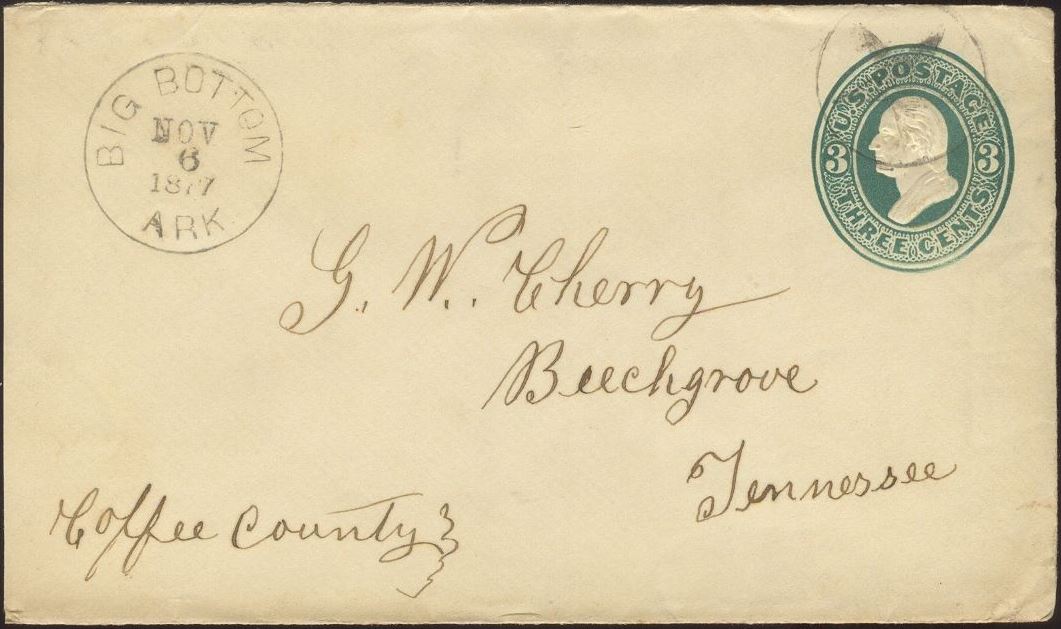 BIG BOTTOM
NOV
6
1877
ARK
U.S. POSTAGE
3 3
THREE CENTS
G. W. Cherry
Beechgrove
Tennessee
Coffee County